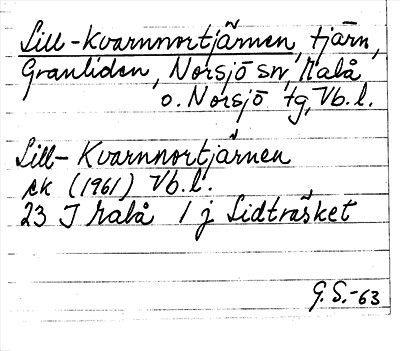 Lill-Kvarnnortjärnen, tjärn,
Granliden, Norsjö sn, Malå
o. Norsjö tg, Vb. l.
Lill-Kvarnnortjärnen
ek (1961) Vb. l.
23 J Malå 1 j Lidträsket
G. S. -63